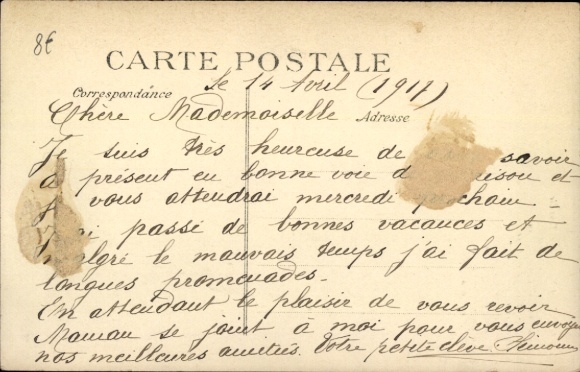 8€
CARTE POSTALE
le 14 Avril (1917)
Correspondance
Chère Mademoiselle
Adresse
Je suis très heureuse de savoir
à présent en bonne voie de et
vous attendrai mercredi prochain
passé de bonnes vacances et
malgré le mauvais temps j'ai fait de
longues promenades.
En attendant le plaisir de vous revoir
Maman se joint à moi pour vous envoyer
nos meilleures amitiés. Votre petite élève